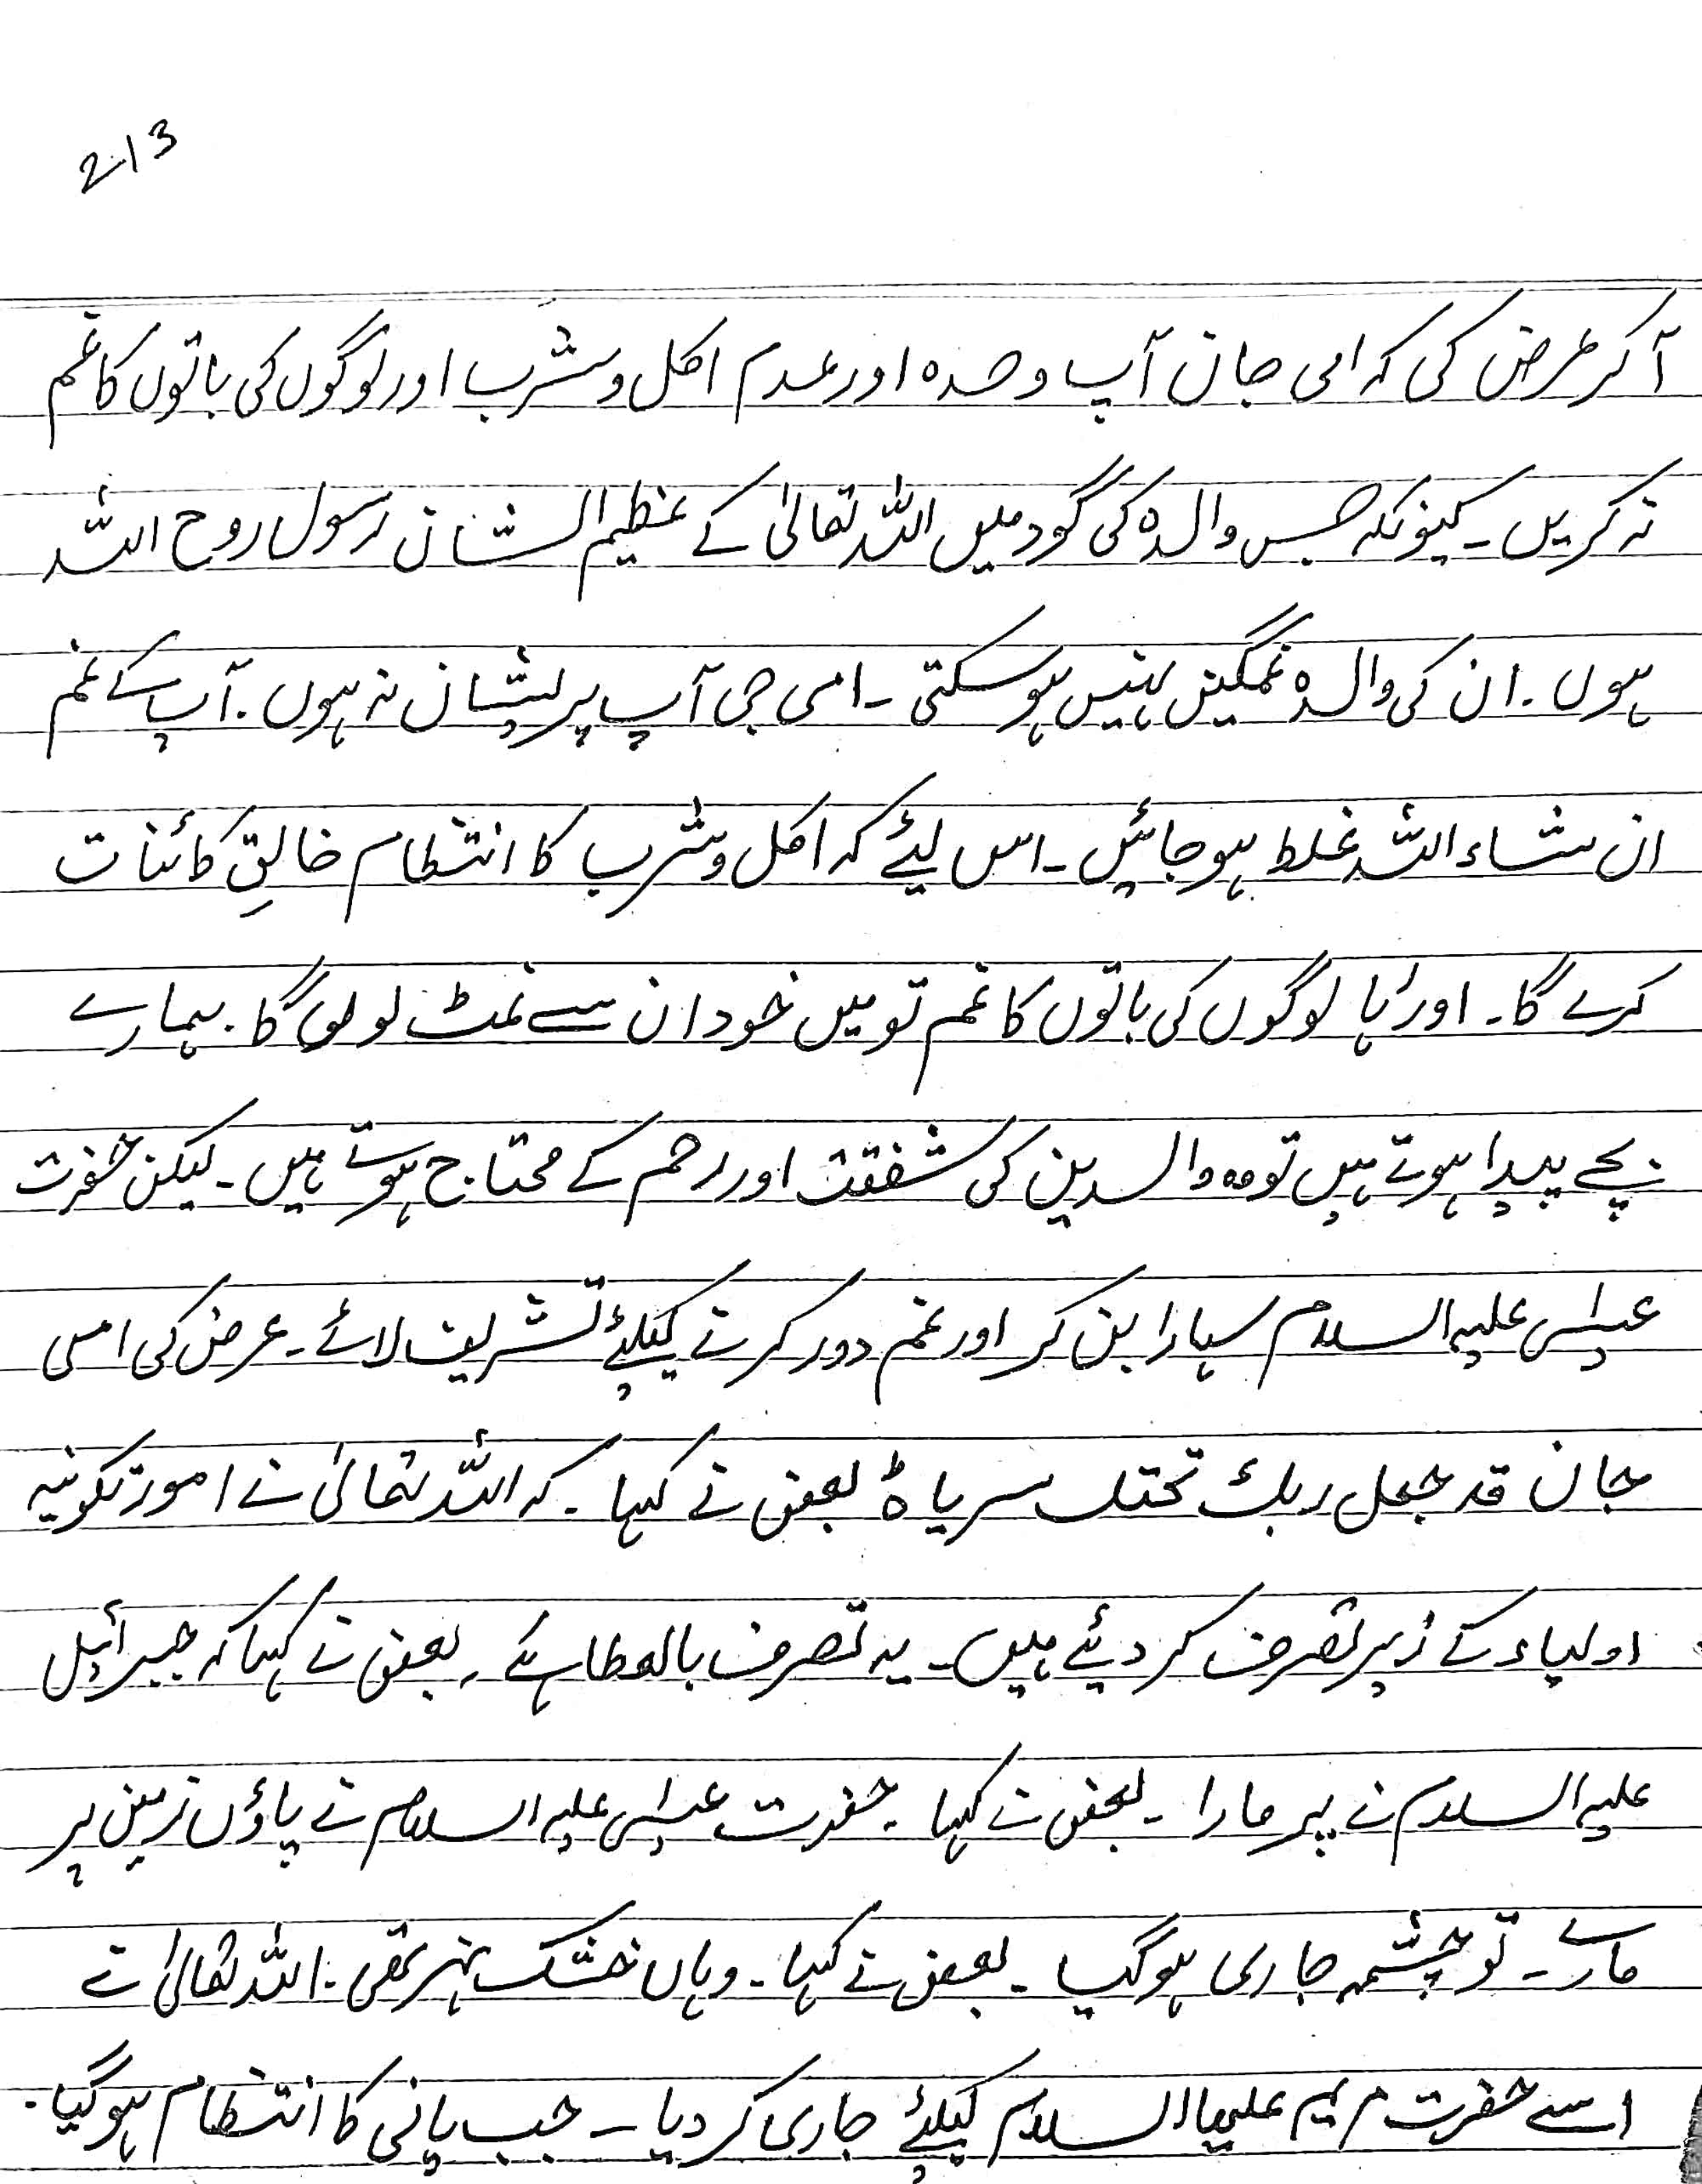 213
آ کر عرض کی کہ امی جان آپ وحدہ اور عدم اکل و شرب اور لوگوں کی باتوں کا غم
نہ کریں۔ کیونکہ جس والدہ کی گود میں اللہ تعالیٰ کے عظیم الشان رسول روح اللہ
ہوں۔ ان کی والدہ غمگین نہیں ہو سکتی۔ امی جی آپ پریشان نہ ہوں۔ آپ کے غم
ان شاء اللہ غلط ہو جائیں۔ اس لیئے کہ اکل و شرب کا انتظام خالقِ کائنات
کرے گا۔ اور رہا لوگوں کی باتوں کا غم تو میں خود ان سے نمٹ لوں گا۔ ہمارے
بچے پیدا ہوتے ہیں تو وہ والدین کی شفقت اور رحم کے محتاج ہوتے ہیں۔ لیکن حضرت
عیسٰی علیہ السلام سہارا بن کر اور غم دور کرنے کیلئے تشریف لائے۔ عرض کی امی
جان قد جعل ربك تحتك سریاہ بعض نے کہا۔ کہ اللہ تعالیٰ نے امور تکونیہ
اولیاء کے زیر تصرف کر دیئے ہیں۔ یہ تصرف بالعطا ہے۔ بعض نے کہا کہ جبرائیل
علیہ السلام نے پر مارا۔ بعض نے کہا۔ حضرت عیسٰی علیہ السلام نے پاؤں زمین پر
مارے۔ تو چشمہ جاری ہو گیا۔ بعض نے کہا۔ وہاں خشک نہر تھی۔ اللہ تعالیٰ نے
اسے حضرت مریم علیہا السلام کیلئے جاری کر دیا۔ جب پانی کا انتظام ہو گیا۔